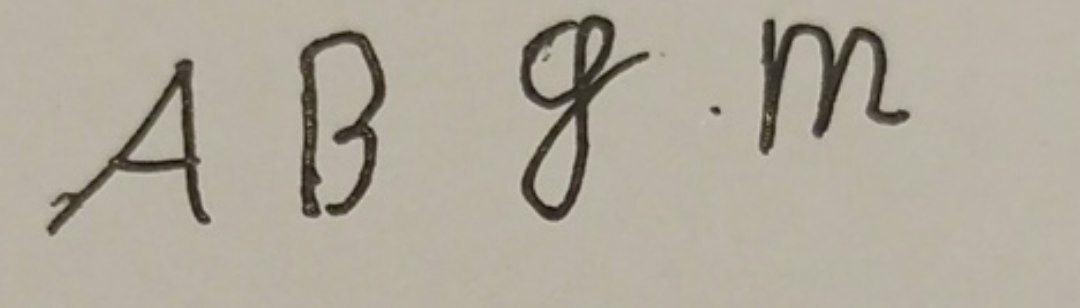 A B g . m